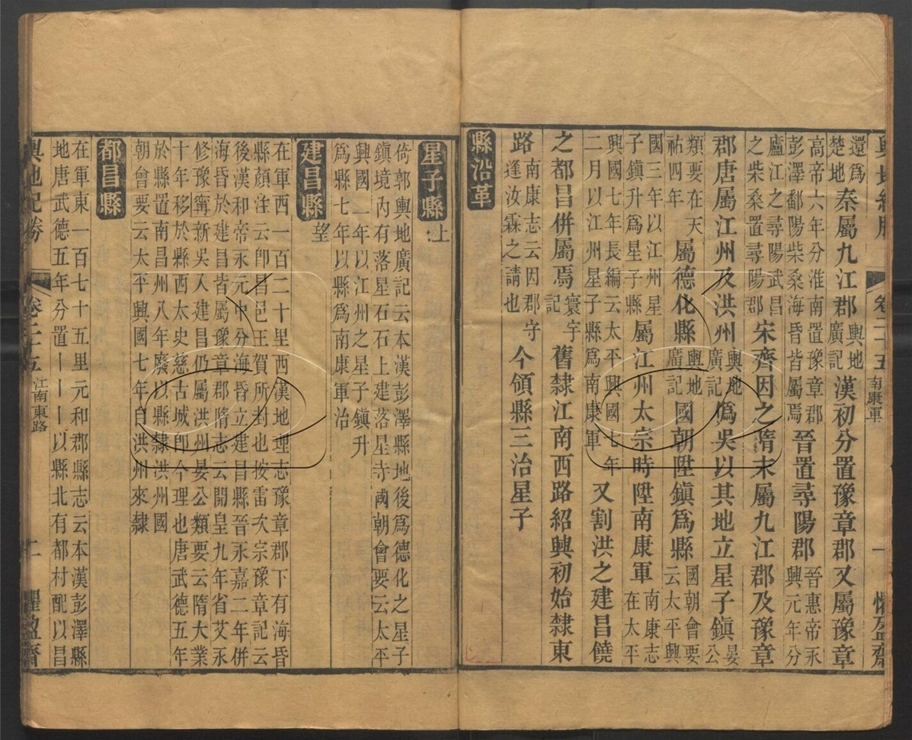 輿地紀勝 卷二十五 南康軍 一 懼盈齋
還爲楚地 秦屬九江郡 輿地廣記 漢初分置豫章郡又屬豫章
高帝六年分淮南置豫章郡彭澤鄱陽柴桑海昏皆屬焉 晉置尋陽郡 晉惠帝永興元年分
廬江之尋陽武昌之柴桑置尋陽郡 宋齊因之隋末屬九江郡及豫章
郡唐屬江州及洪州 輿地廣記 僞吳以其地立星子鎮 晏公
類要在天祐四年 屬德化縣 輿地廣記 國朝陞鎮爲縣 國朝會要云太平興
國三年以江州星子鎮升爲星子縣 屬江州太宗時陞南康軍 南康志在太平
興國七年長編云太平興國七年二月以江州星子縣爲南康軍 又割洪之建昌饒
之都昌併屬焉 寰宇記 舊隸江南西路紹興初始隸東
路 南康志云因郡守逢汝霖之請也 今領縣三治星子
縣沿革
星子縣 上
倚郭輿地廣記云本漢彭澤縣地後爲德化之星子
鎮境內有落星石石上建落星寺國朝會要云太平
興國二年以江州之星子鎮升
爲縣七年以縣爲南康軍治
建昌縣 望
在軍西一百二十里西漢地理志豫章郡下有海昏
縣顏注云卽昌邑王賀所封也按雷次宗豫章記云
後漢和帝永元中分海昏立建昌縣晉永嘉二年併
海昏於建昌皆屬豫章郡隋志云開皇九年省艾永
修豫寧新吳入建昌仍屬洪州晏公類要云隋大業
十年移於縣西太史慈古城卽今理也唐武德五年
於縣置南昌州八年廢以縣隸洪州國
朝會要云太平興國七年自洪州來隸
都昌縣
在軍東一百七十五里元和郡縣志云本漢彭澤縣
地唐武德五年分置｜｜｜以縣北有都村配以昌
輿地紀勝 卷二十五 江南東路 二 懼盈齋